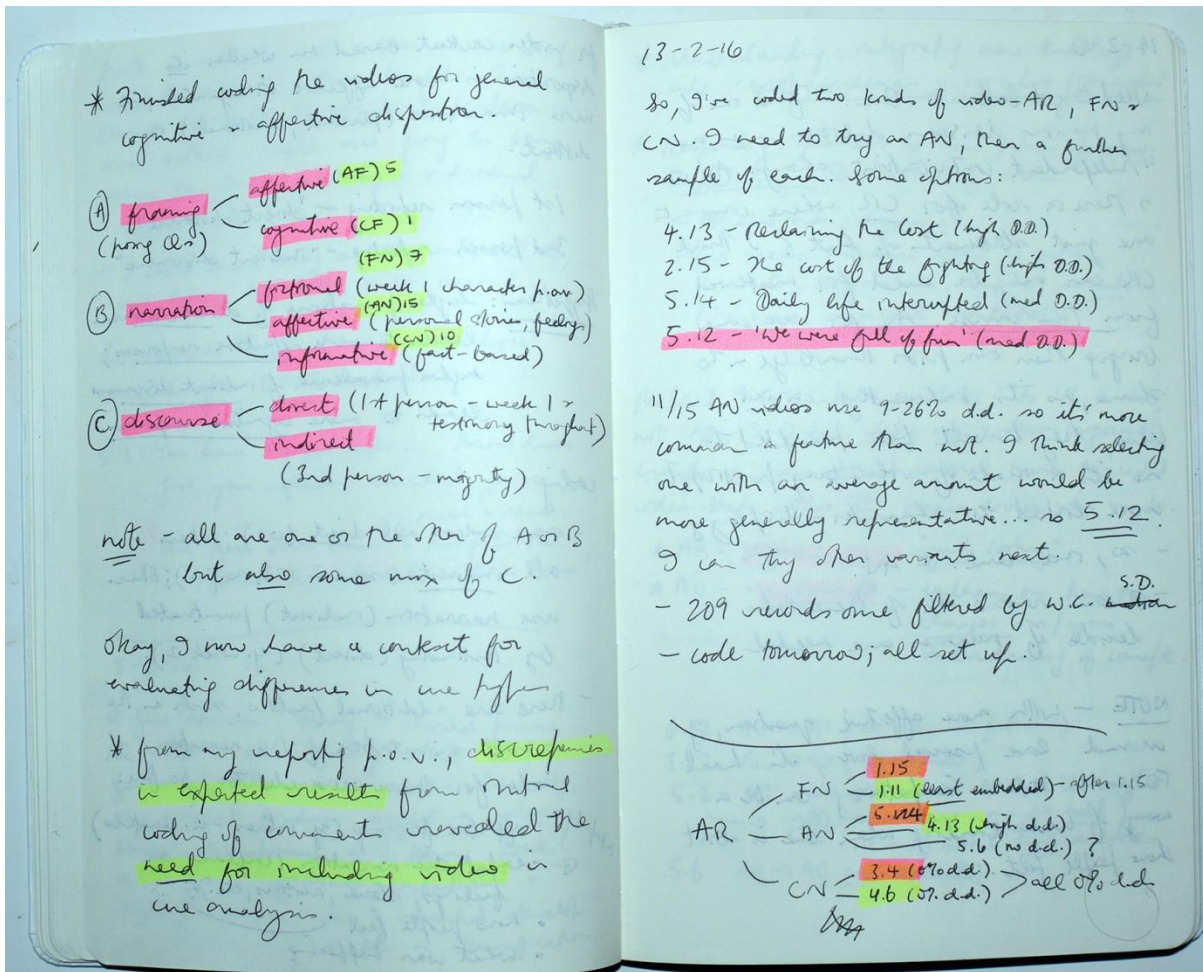 * Finished coding the videos for general
cognitive & affective disposition.
(A) framing
(posing Qs)
affective (AF) 5
cognitive (CF) 1
(FN) 7
(B) narration
fictional (week 1 character p.o.v.)
(AN) 15
affective (personal stories, feelings)
(CN) 10
informative (fact-based)
(C) discourse
direct (1st person - week 1 &
testimony throughout)
indirect
(3rd person - majority)
note - all are one or the other of A or B
but also some mix of C.
Okay, I now have a context for
evaluating differences in use types
* from my reporting p.o.v., discrepencies
in expected results from
coding of comments revealed the
need for including video in
analysis.
13-2-16
So, I've coded two kinds of video - AR, FN &
CN. I need to try an AN, then a further
sample of each. Some options:
4.13 - Reclaiming the Lost (high D.D.)
2.15 - The cost of the fighting (high D.D.)
5.14 - Daily life interrupted (med D.D.)
5.12 - 'We were full of fun' (med D.D.)
11/15 AN videos use 9-26% d.d. so it's more
common a feature than not. I think selecting
one with an average amount would be
more generally representative... so 5.12.
I can try other variants next.
S.D.
- 209 records once filtered by W.C.
- code tomorrow; all set up.
AR
FN
1.15
1.11 (least embedded) - after 1.15
AN
4.13 (high d.d.)
5.6 (no d.d.) ?
CN
3.4 (0% d.d.)
4.6 (0% d.d.)
all 0% d.d.